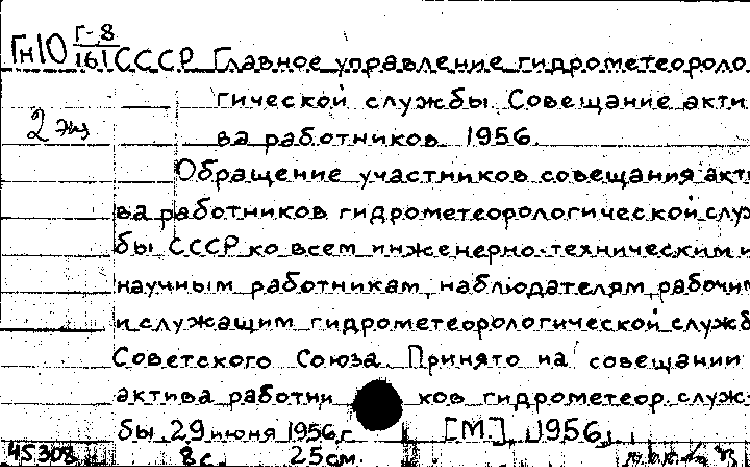 Гн10 Г-8
161 СССР Главное управление гидрометеороло
гической службы. Совещание акти
2 экз
ва работников. 1956.
Обращение участников совещания акти
ва работников гидрометеорологической служ
бы СССР ко всем инженерно-техническим и
научным работникам, наблюдателям, рабочим
и служащим гидрометеорологической служб
Советского Союза. Принято на совещании
актива работни ков гидрометеор. служ-
бы. 29 июня 1956 г. [М.], 1956.
45308 8 с. 25 см.